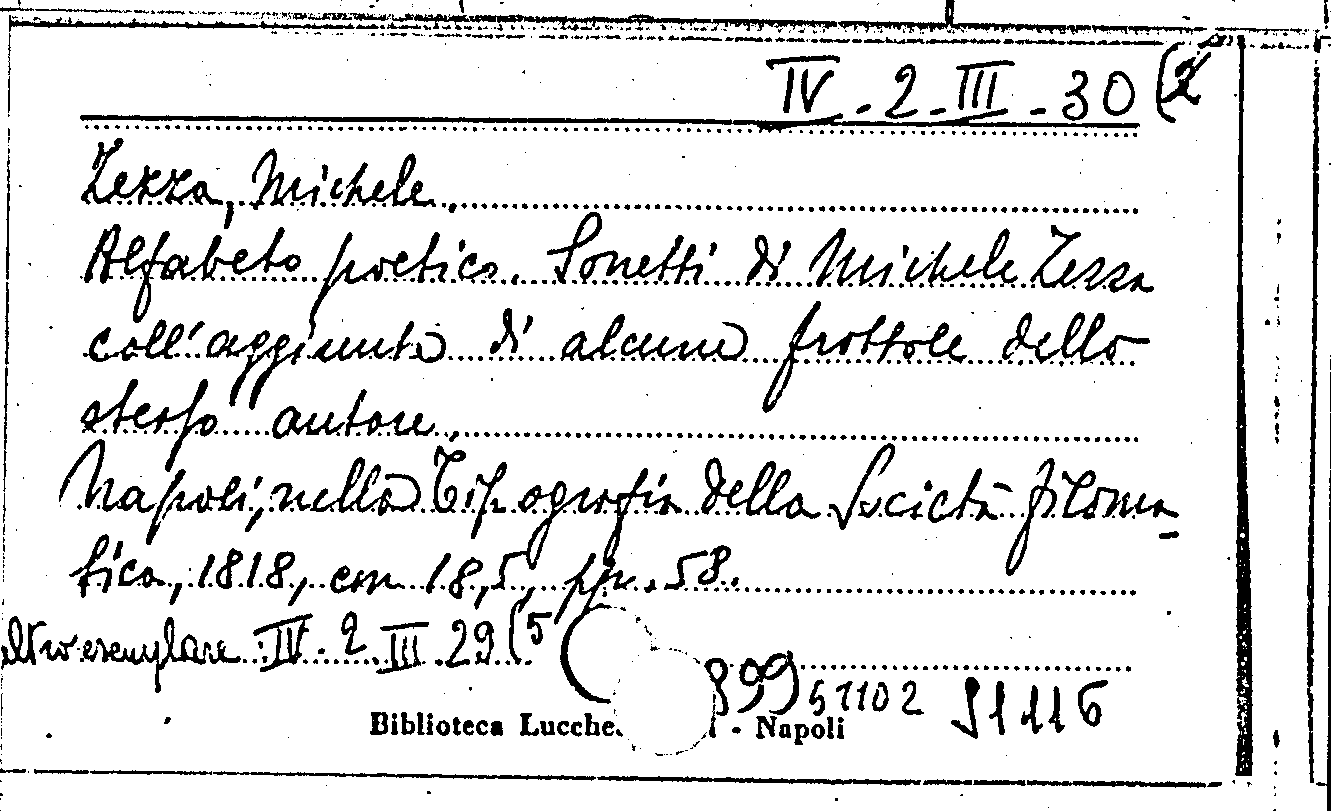 IV.2.III.30(2
Zezza, Michele.
Alfabeto poetico. Sonetti di Michele Zezza
coll'aggiunta di alcune frottole dello
stesso autore.
Napoli, nella Tipografia della Società filoma-
tica, 1818, cm 18,5, pp. 58.
altro esemplare IV.2.III.29(5
899 51102 91116
Biblioteca Lucche - Napoli